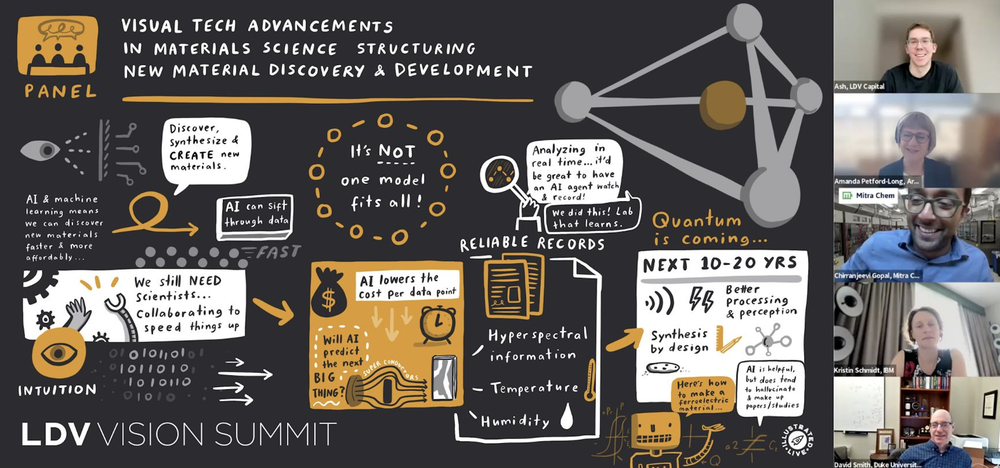 PANEL
VISUAL TECH ADVANCEMENTS
IN MATERIALS SCIENCE STRUCTURING
NEW MATERIAL DISCOVERY & DEVELOPMENT
Discover,
Synthesize &
CREATE new
materials.
AI & machine
learning means
we can discover
new materials
faster & more
affordably...
AI can sift
through data
FAST
It's NOT
one model
fits all!
Analyzing in
real time...it'd
be great to have
an AI agent watch
& record!
We did this! Lab
that learns.
We still NEED
Scientists...
Collaborating to
speed things up
INTUITION
$
AI lowers the
cost per data point
Will AI
predict
the next
BIG
THING?
SUPER CONDUCTORS
RELIABLE RECORDS
Hyperspectral
information
Temperature
Humidity
Quantum
is coming...
NEXT 10-20 YRS
Better
processing
& perception
Synthesis
by design
Here's how
to make a
ferroelectric
material...
AI is helpful,
but does tend
to hallucinate
& make up
papers/studies
ILLUSTRATED
LIVE
LDV VISION SUMMIT
Ash, LDV Capital
Amanda Petford-Long, Ar...
Mitra Chem
Chirranjeevi Gopal, Mitra C...
Kristin Schmidt, IBM
David Smith, Duke Universit...